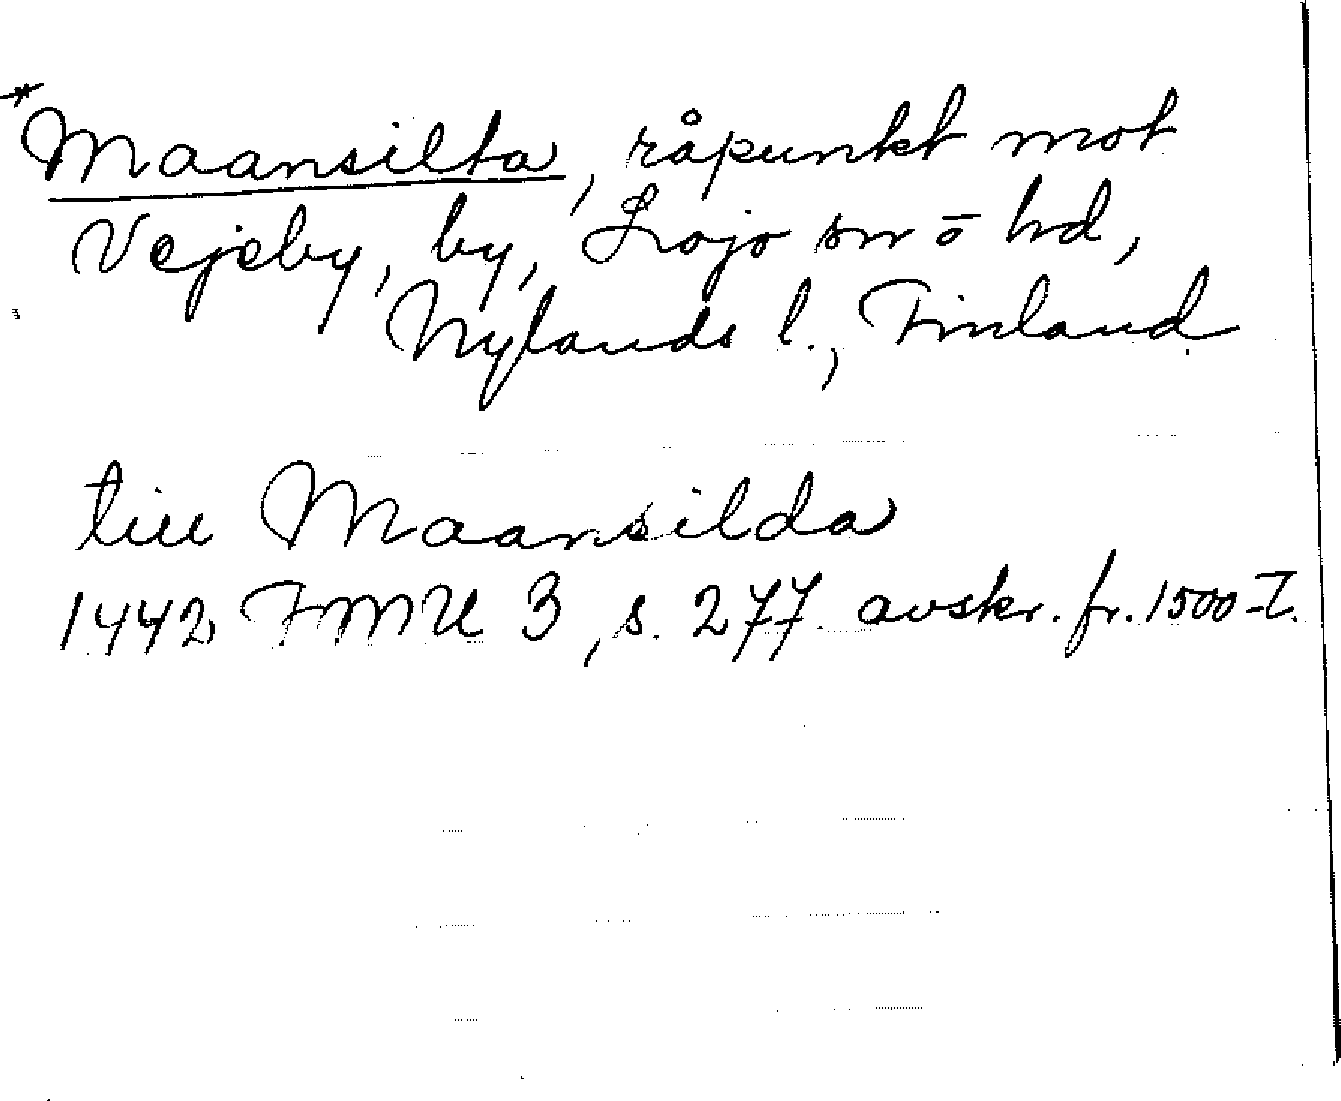 *Maansilta, råpunkt mot
Vejeby, by, Lojo sn o hd,
Nylands l., Finland
till Maansilda
1442 FMU 3, s. 277 avskr. fr. 1500-T.